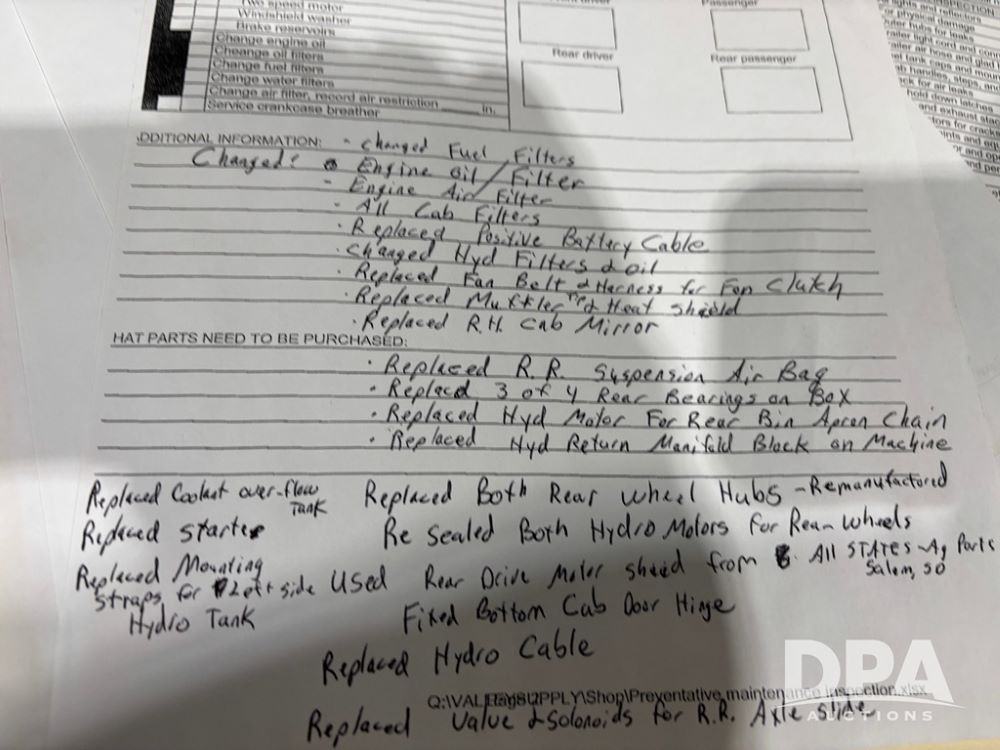 Two speed motor
Windshield washer
Brake reservoirs
Change engine oil
Cheange oil filters
Change fuel filters
Change water filters
Change air filter, record air restriction ____ in.
Service crankcase breather
driver
Passenger
Rear driver
Rear passenger
DDITIONAL INFORMATION: - changed Fuel Filters
Changed: • Engine oil / Filter
- Engine Air Filter
- All Cab Filters
• Replaced Positive Battery Cable
• Changed Hyd Filters & oil
• Replaced Fan Belt & Harness for Fan Clutch
• Replaced Muffler & Heat Shield
• Replaced R.H. Cab Mirror
HAT PARTS NEED TO BE PURCHASED:
• Replaced R.R. Suspension Air Bag
• Replacd 3 of 4 Rear Bearings on Box
• Replaced Hyd Motor For Rear Bin Apron Chain
• Replaced Hyd Return Manifold Block on Machine
Replaced Coolant over-flow Tank
Replaced Both Rear Wheel Hubs - Remanufactured
Replaced starter
Re Sealed Both Hydro Motors for Rear Wheels
Replaced Mounting
straps for Left side
Hydro Tank
Used Rear Drive Motor sheid from All STATES-Ag Parts
Salem, SD
Fixed Bottom Cab Door Hinge
Replaced Hydro Cable
Preventative maintenance inspection.xlsx
Replaced Value & Solonoids for R.R. Axle slide
DPA
AUCTIONS